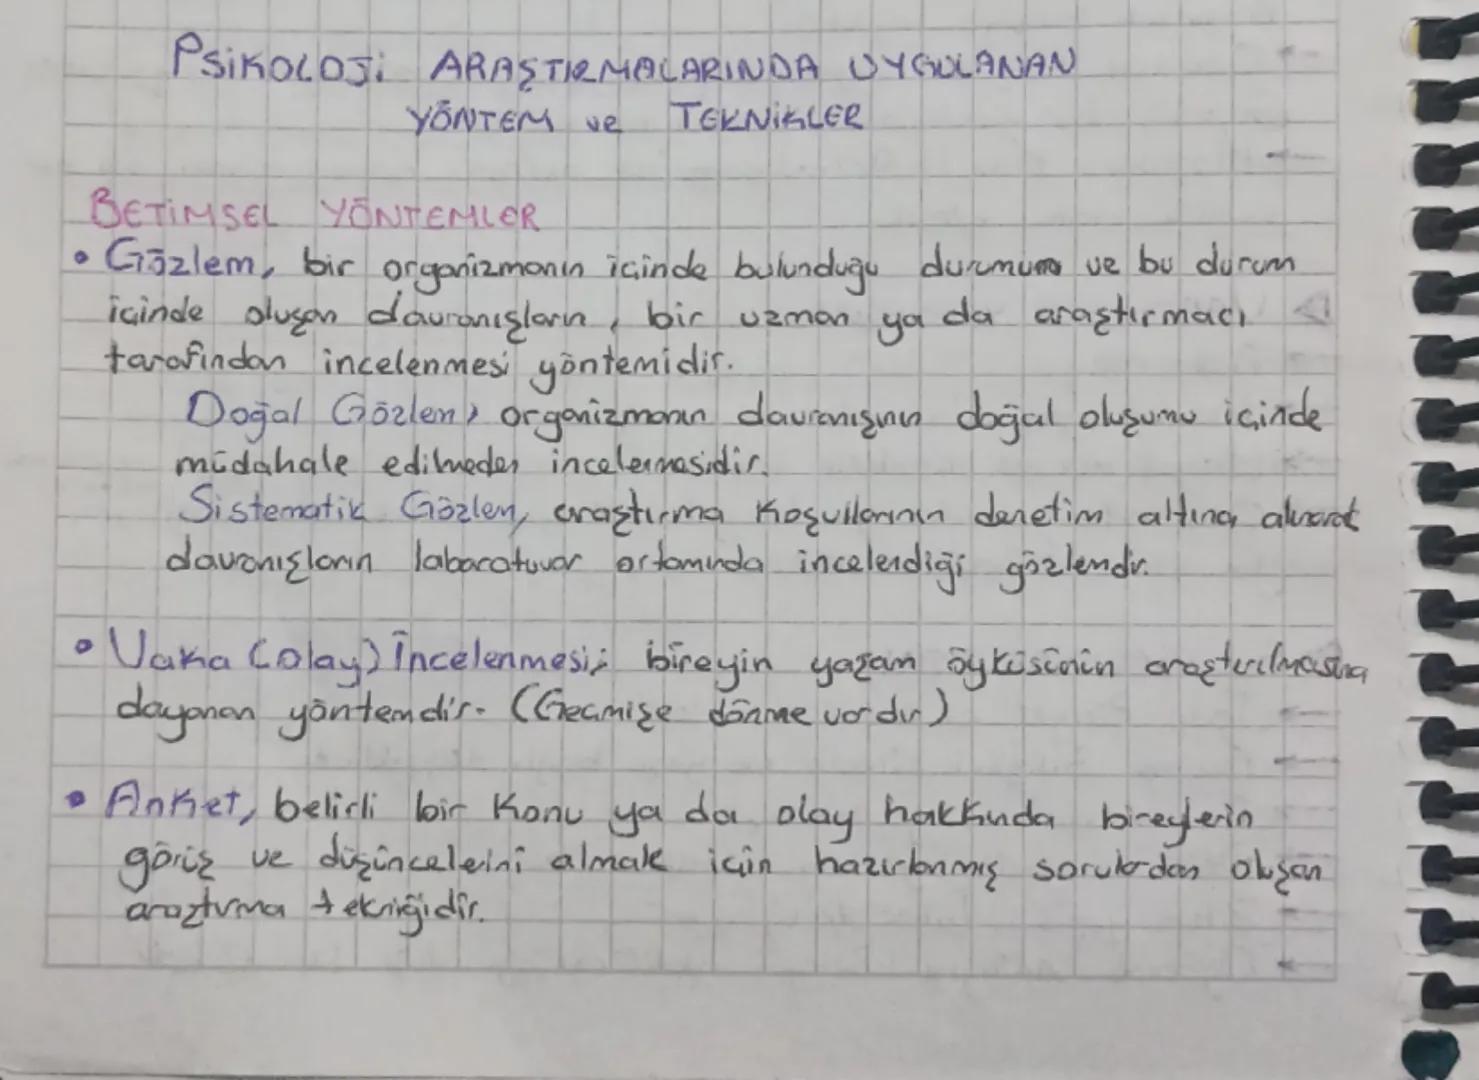 PSİKOLOJİ ARAŞTIRMALARINDA UYGULANAN
YÖNTEM ve TEKNİKLER
BETİMSEL YÖNTEMLER
• Gözlem, bir organizmanın içinde bulunduğu durumunu ve bu durum
içinde oluşan davranışların, bir uzman ya da araştırmacı
tarafından incelenmesi yöntemidir.
Doğal Gözlem, organizmanın davranışının doğal oluşumu içinde
müdahale edilmeden incelenmesidir.
Sistematik Gözlem, araştırma koşullarının denetim altına alınarak
davranışların labaratuvar ortamında incelendiği gözlemdir.
• Vaka (olay) İncelenmesi; bireyin yaşam öyküsünün araştırılmasına
dayanan yöntemdir. (Geçmişe dönme vardır)
• Anket, belirli bir konu ya da olay hakkında bireylerin
görüş ve düşüncelerini almak için hazırlanmış sorulardan oluşan
araştırma tekniğidir.